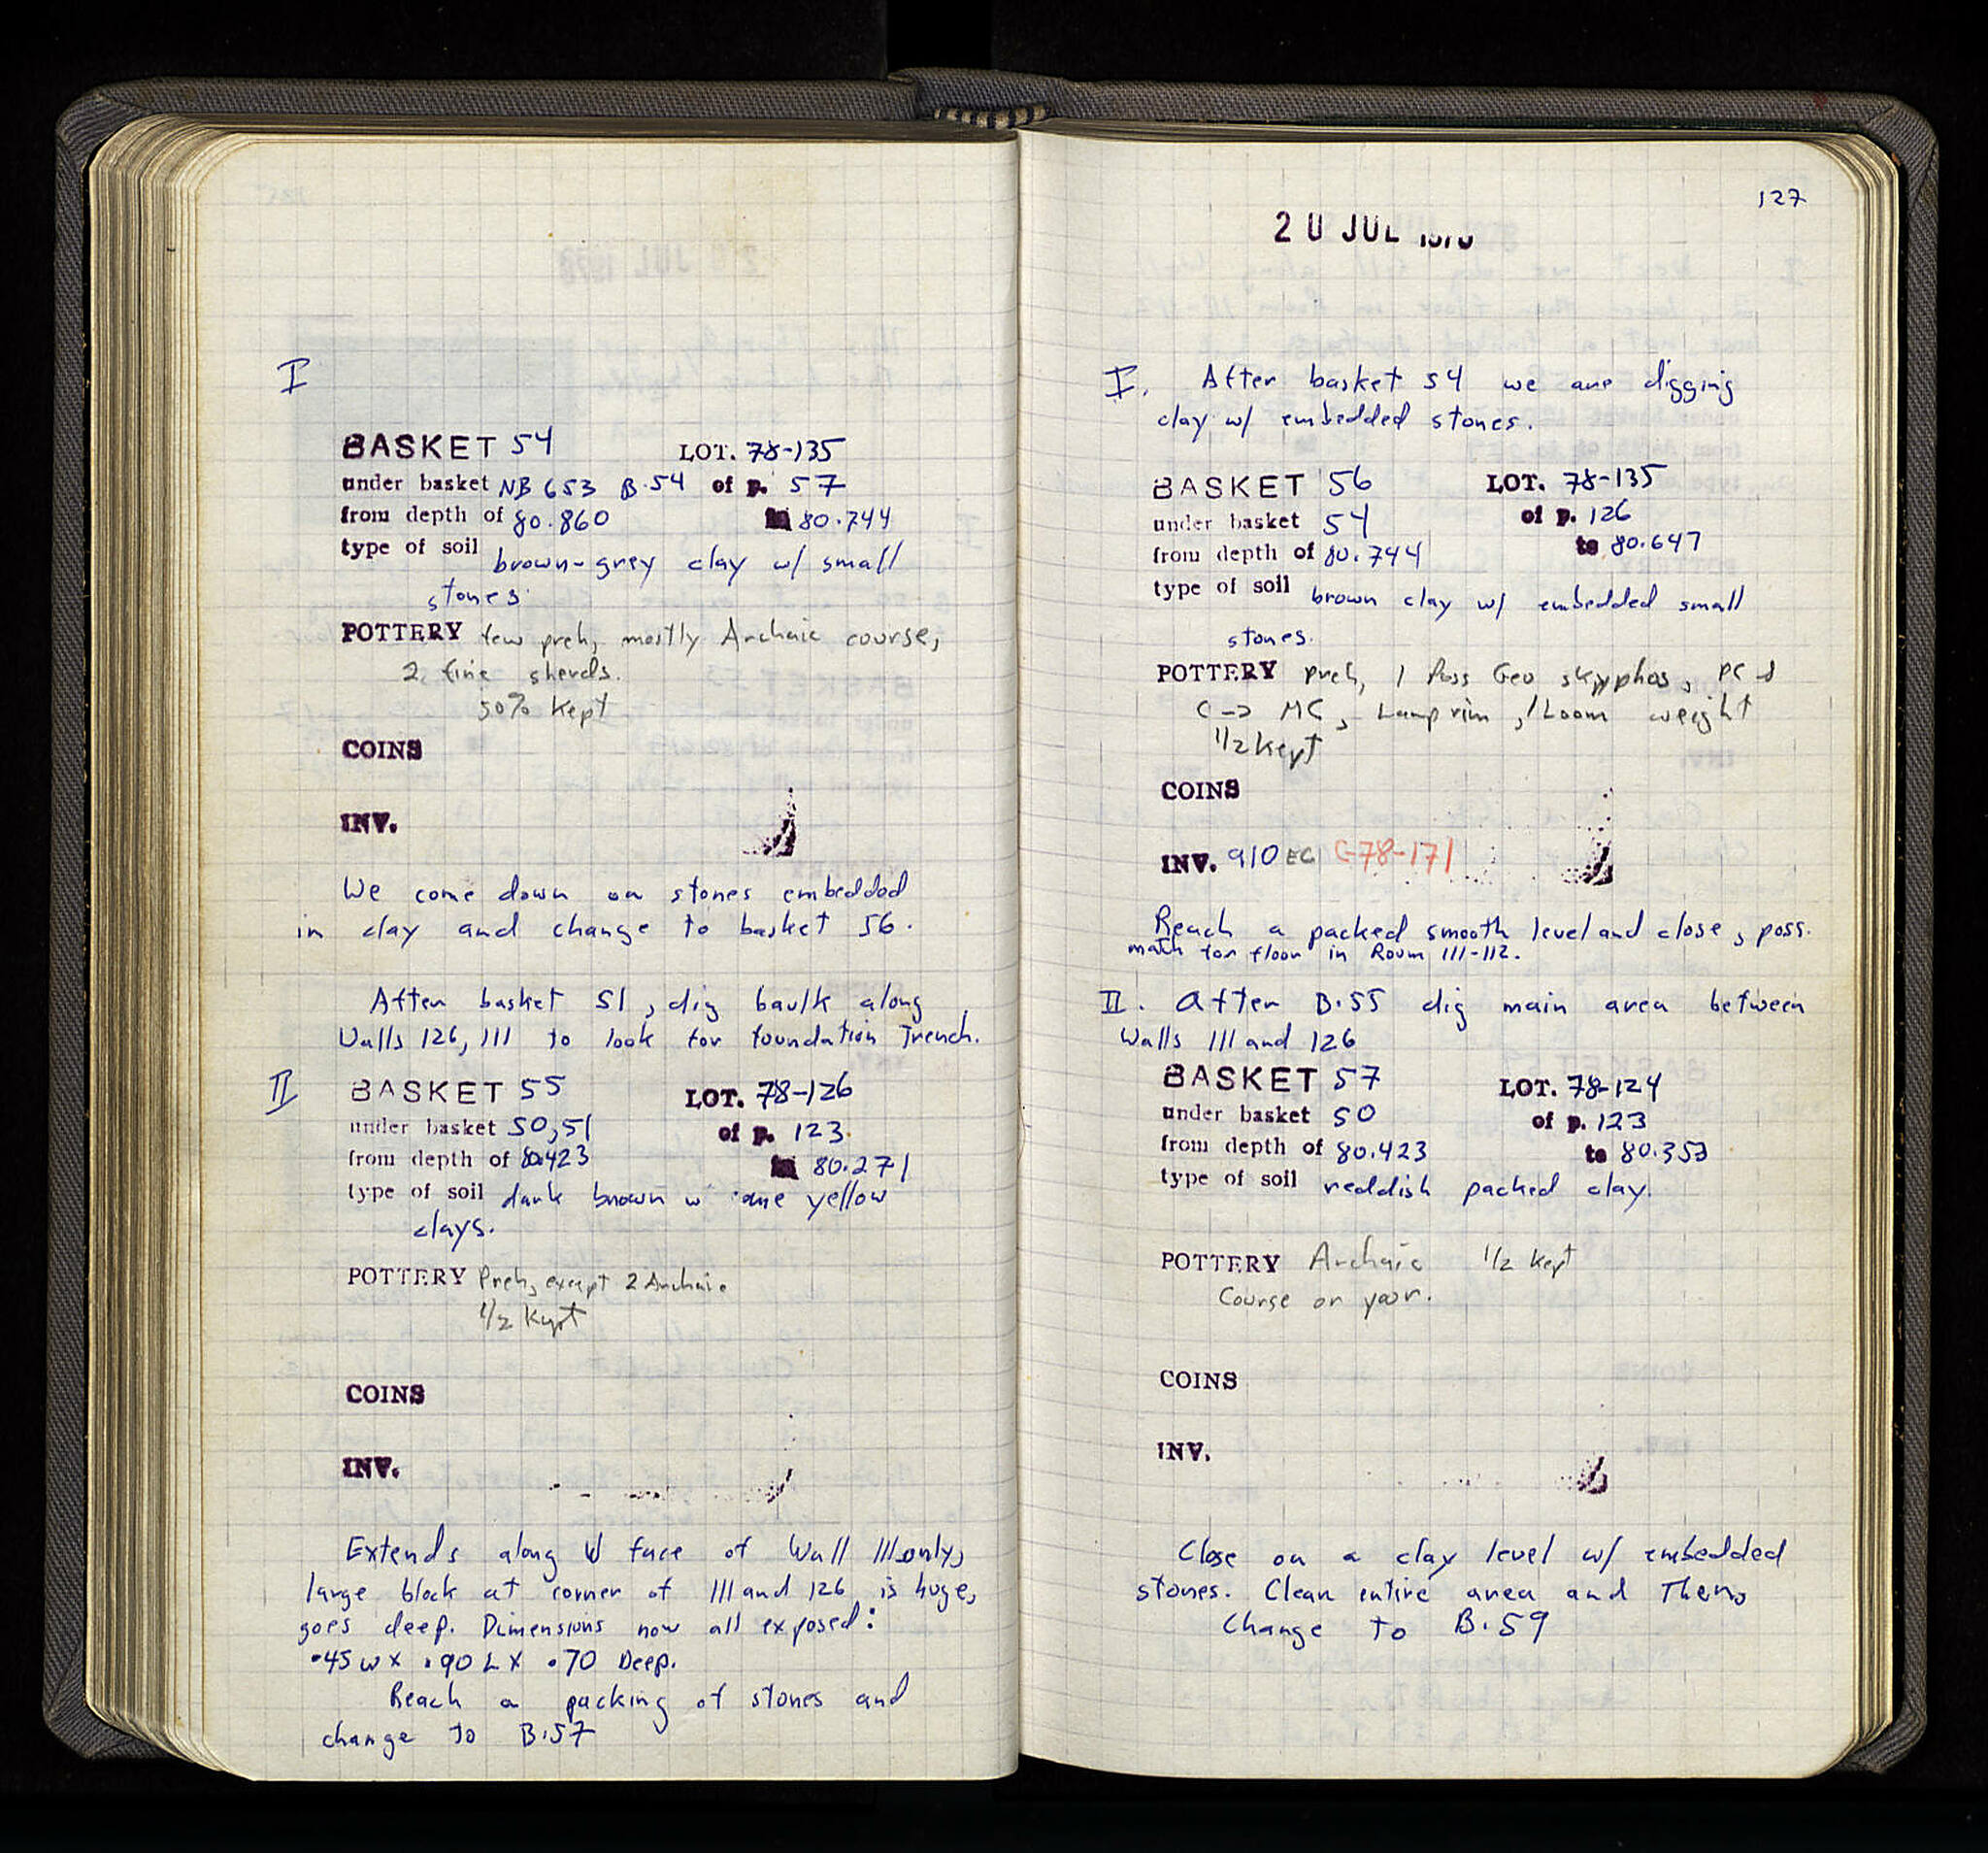 I
BASKET 54 LOT. 78-135
under basket NB 653 B.54 of p. 57
from depth of 80.860 to 80.744
type of soil brown-grey clay w/ small
stones.
POTTERY few preh, mostly Archaic course,
2 fine sherds.
50% Kept
COINS
INV.
We come down on stones embedded
in clay and change to basket 56.
After basket 51, dig baulk along
Walls 126, 111 to look for foundation Trench.
II BASKET 55 LOT. 78-126
under basket 50,51 of p. 123
from depth of 80.423 to 80.271
type of soil dark brown w some yellow
clays.
POTTERY Preh, except 2 Archaic
1/2 Kept
COINS
INV.
Extends along W face of Wall 111 only,
large block at corner of 111 and 126 is huge,
goes deep. Dimensions now all exposed:
.45 W x .90 L x .70 Deep.
Reach a packing of stones and
change to B.57
127
20 JUL 1978
I. After basket 54 we are digging
clay w/ embedded stones.
BASKET 56 LOT. 78-135
under basket 54 of p. 126
from depth of 80.744 to 80.647
type of soil brown clay w/ embedded small
stones.
POTTERY Preh, 1 Poss Geo skyphos, PC
C -> MC, Lamp rim, 1 Loom weight
1/2 Kept
COINS
INV. 910 EG C-78-171
Reach a packed smooth level and close, poss.
match for floor in Room 111-112.
II. After B.55 dig main area between
Walls 111 and 126
BASKET 57 LOT. 78-124
under basket 50 of p. 123
from depth of 80.423 to 80.353
type of soil reddish packed clay.
POTTERY Archaic 1/2 Kept
Course or poor.
COINS
INV.
Close on a clay level w/ embedded
stones. Clean entire area and Then,
Change to B.59